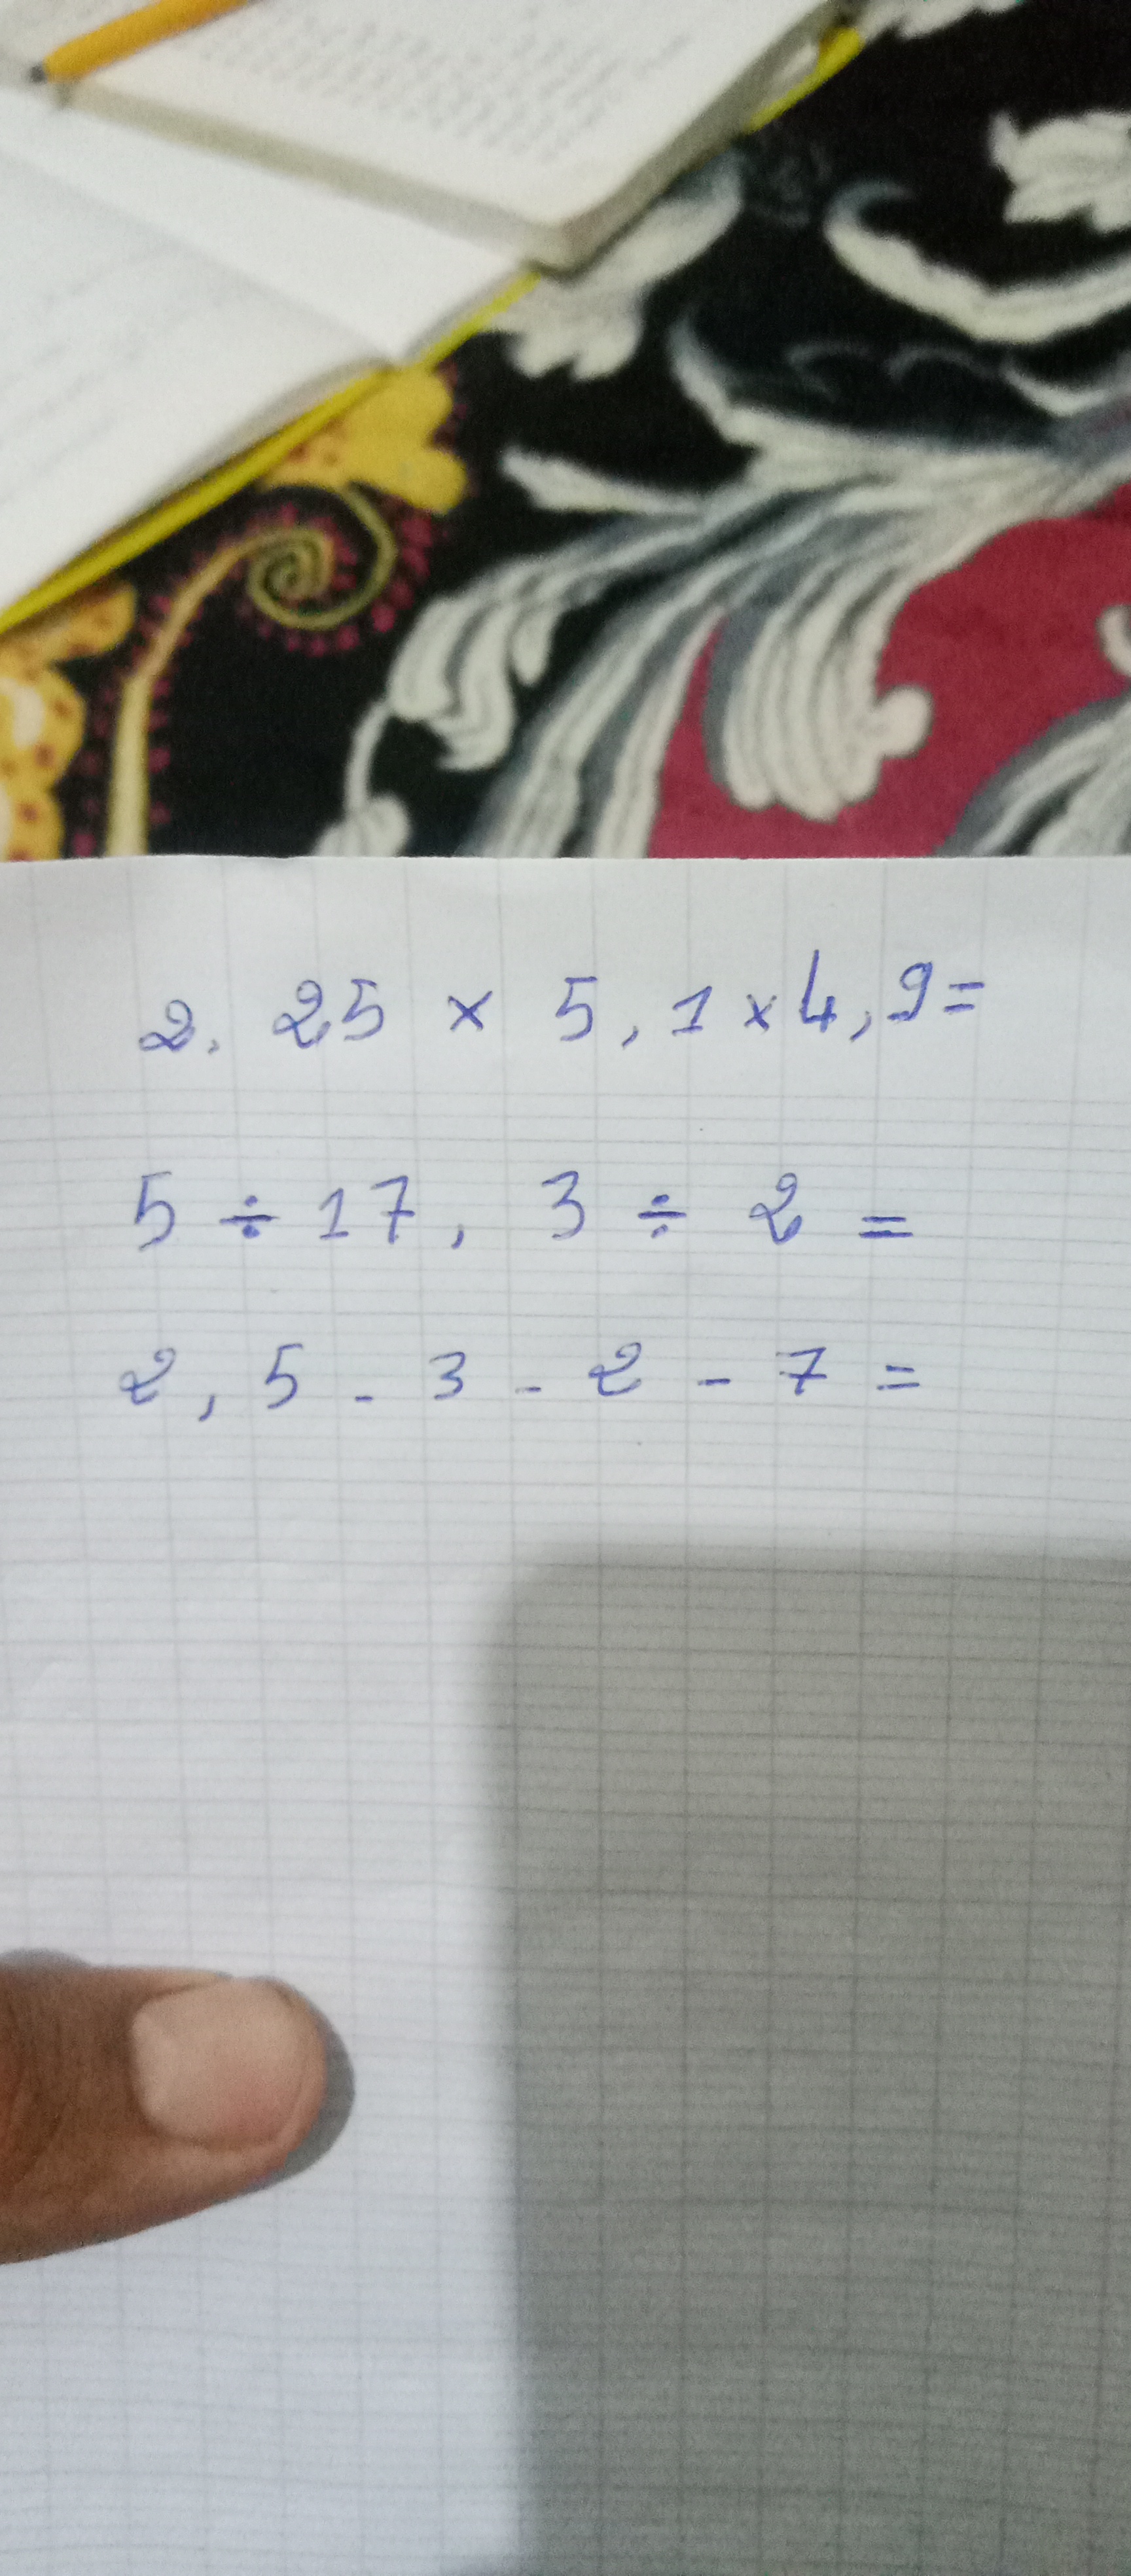 2. 25 × 5, 1 × 4, 9 =
5 ÷ 17, 3 ÷ 2 =
2, 5 - 3 - 2 - 7 =